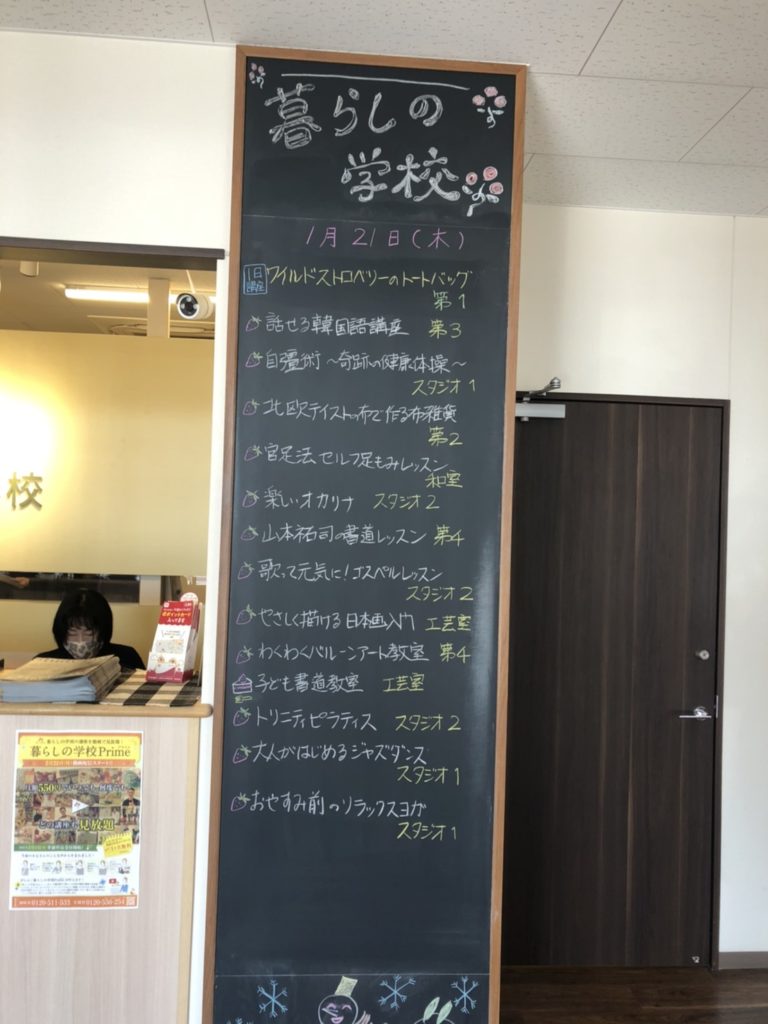 暮らしの
学校
1月21日(木)
1日
講座
ワイルドストロベリーのトートバッグ
第1
話せる韓国語講座 第3
自彊術 〜奇跡の健康体操〜
スタジオ1
北欧テイストの布で作る布雑貨
第2
官足法 セルフ足もみレッスン
和室
楽しいオカリナ スタジオ2
山本祐司の書道レッスン 第4
歌って元気に!ゴスペルレッスン
スタジオ2
やさしく描ける日本画入門 工芸室
わくわくバルーンアート教室 第4
子ども書道教室 工芸室
トリニティピラティス スタジオ2
大人がはじめるジャズダンス
スタジオ1
おやすみ前のリラックスヨガ
スタジオ1
校
暮らしの学校Prime
月額550円
どの講座も見放題
0120-511-532
0120-556-254